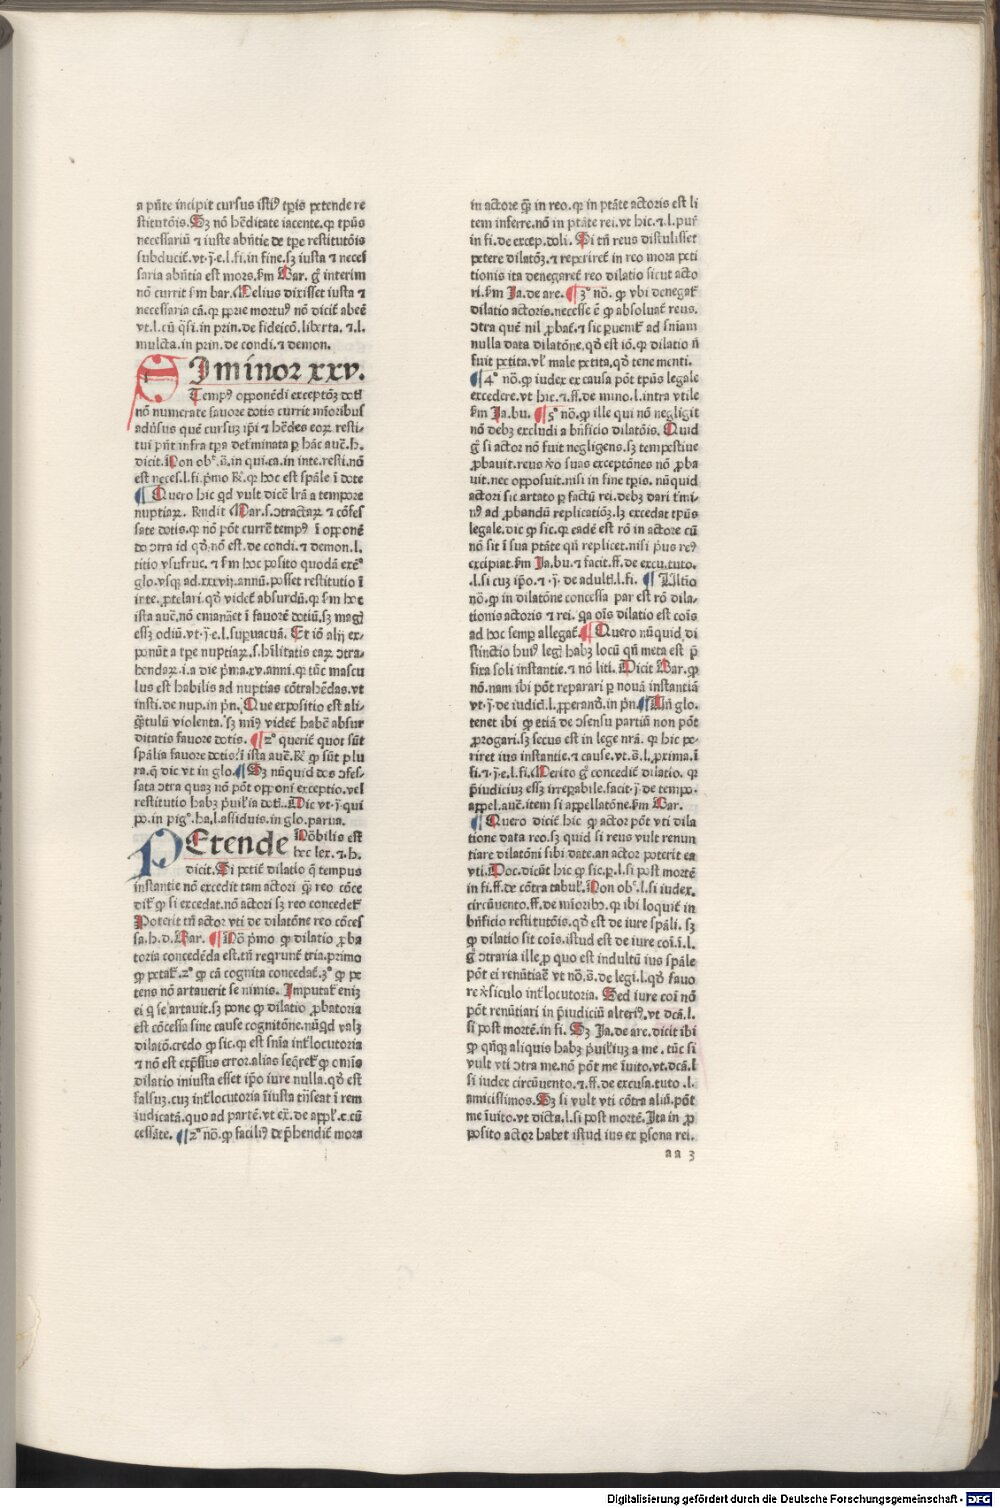 a pn̄te incipit cursus isti⁹ tp̄is petende re
stitutōis. Sꝫ nō hēditate iacente. qꝛ tp̄us
necessariū ⁊ iuste abn̄tie de tp̄e restitutōis
subducit᷑. vt .j. e. l. fi. in fine. sꝫ iusta ⁊ neces
saria abn̄tia est mors. ẜm Bar. gͦ interim
nō currit ẜm bar. Melius dixisset iusta ⁊
necessaria cā. qꝛ ꝓprie mortu⁹ nō dicit᷑ abeē
vt. l. cū q̄si. in prin. de fideicō. liberta. ⁊. l.
mulcta. in prin. de condi. ⁊ demon.
SI minor xxv.
Temp⁹ opponēdi exceptōꝫ dotꝭ
nō numerate fauore dotis currit mīoribus
aduersus quē cursuꝫ ip̄i ⁊ hēdes eoꝝ resti-
tui pn̄t infra tp̄a det᷑minata ꝑ hāc autē. h.
dicit. Non obͭ. s̄. in qui. ca. in inte. resti. nō
est neces. l. fi. p̄mo ꝛc̄. qꝛ hoc est sp̄ale ī dote
¶ Quero hic qd vult dicē lr̄a a tempore
nuptiaꝝ. Rn̄dit Bar. s. ↄtractaꝝ ⁊ cōfes
sate dotis. qꝛ nō pōt currē temp⁹ ī opponē
do ↄtra id qđ nō est. de condi. ⁊ demon. l.
titio vsufruc. ⁊ ẜm hoc posito quodā exēͦ
glo. vsqꝫ ad. xxxvij. annū. posset restitutio ī
inte. ꝓtelari. qđ videt᷑ absurdū. qꝛ ẜm hoc
ista autē. nō emanass̄et ī fauorē dotiū. sꝫ magꝭ
essꝫ odiū. vt. j. e. l. suꝑuacuā. Et iō alij ex-
ponūt a tp̄e nuptiaꝝ. s. hilitatis eaꝝ ↄtra-
hendaꝝ. i. a die p̄ma. xv. anni. qꝛ tūc mascu
lus est habilis ad nuptias cōtrahēdas. vt
insti. de nup. in pn̄. Que expositio est ali-
q̄tulū violenta. sꝫ min⁹ videt᷑ habē absur
ditatis fauore dotis. ¶ 2ͦ querit᷑ quot sūt
sp̄alia fauore dotis. ī ista autē. ꝛc̄. qꝙ sūt plu
ra. q̄ dic vt in glo. ¶ Sꝫ nūquid dos ↄfes-
sata ↄtra quaꝫ nō pōt opponi exceptio. vel
restitutio habꝫ p̄uil'ia dotꝭ. Dic vt. j. qui
po. in pigͦ. ha. l. assiduis. in glo. parua.
PEtende Nobilis est
hec lex. ⁊. h.
dicit. Si petit᷑ dilatio q̄ tempus
instantie nō excedit tam actori q̄ꝫ reo cōce
dit᷑ ꝙ si excedat. nō actori sꝫ reo concedet᷑
Poterit tn̄ actor vti de dilatōne reo cōces
sa. h. d. Bar. ¶ Nō p̄mo ꝙ dilatio ꝓba
toria concedēda est. tn̄ reqrunt᷑ tria. primo
ꝙ petat᷑. 2ͦ. ꝙ cā cognita concedat᷑. 3ͦ. ꝙ pe
tens nō artauerit se nimis. Imputat᷑ enīꝫ
ei q̄ se artauit. sꝫ pone ꝙ dilatio ꝓbatoria
est cōcessa sine cause cognitōne. nūqd valꝫ
dilatiō. credo ꝙ sic. qꝛ est sn̄ia int᷑locutoria
⁊ nō est exp̄ssus error. alias seq̄ret᷑ ꝙ omīs
dilatio iniusta esset ip̄o iure nulla. qđ est
falsuꝫ. cuꝫ int᷑locutoria īiusta trāseat ī rem
iudicatā. quo ad partē. vt ex̄. de appl'. c. cū
cessāte. ¶ 2ͦ nō. ꝙ facili⁹ dep̄hendit᷑ mora
in actore q̄ꝫ in reo. qꝛ in ptāte actoris est li
tem inferre. nō in ptāte rei. vt hic. ⁊. l. pur̄
in fi. de excep. doli. Si tn̄ reus distulisset
petere dilatōꝫ. ⁊ reperiret᷑ in reo mora peti
tionis ita denegaret᷑ reo dilatio sicut acto
ri. ẜm Ja. de are. ¶ 3ͦ nō. ꝙ vbi denegat᷑
dilatio actoris. necesse ē ꝙ absoluat᷑ reus.
ↄtra quē nil ꝓbat᷑. ⁊ sic ꝑuenit᷑ ad sn̄iam
nulla data dilatōne. qđ est iō. qꝛ dilatio n̄
fuit petita. vl' male petita. qđ tene menti.
¶ 4ͦ nō. ꝙ iudex ex causa pōt tp̄us legale
excedere. vt hic. ⁊. ff. de mino. l. intra vtile
ẜm Ja. bu. ¶ 5ͦ nō. ꝙ ille qui nō negligit
nō debꝫ excludi a bn̄ficio dilatōis. Quid
gͦ si actor nō fuit negligens. sꝫ tempestiue
ꝓbauit. reus v̄o suas exceptōnes nō ꝓba
uit. nec opposuit. nisi in fine tp̄is. nūquid
actori sic artato ꝑ factū rei. debꝫ dari t᷑mi-
n⁹ ad ꝓbandū replicatiōꝫ. lꝫ excedat tp̄us
legale. dic ꝙ sic. qꝛ eadē est rō in actore cū
nō sit ī sua ptāte qn̄ replicet. nisi p̄us re⁹
excipiat. ẜm Ja. bu. ⁊ facit. ff. de excu. tuto.
. l. si cuꝫ ip̄o. ⁊. j. de adultꝭ. l. fi. ¶ Ultīo
nō. ꝙ in dilatōne concessa par est rō dila-
tionis actoris ⁊ rei. qa oīs dilatio est coīs
ad hoc semꝑ allegat᷑. ¶ Quero nūquid di
stinctio hui⁹ legꝭ habꝫ locū qn̄ meta est p̄
fixa soli instantie. ⁊ nō liti. Dicit Bar. ꝙ
nō. nam ibi pōt reparari ꝑ nouā instantiā
vt. j. de iudicꝭ. l. ꝓperandū. in pn̄. ¶ Un̄ glo.
tenet ibi ꝙ etiā de ↄsensu partiū non pōt
ꝓrogari. sꝫ secus est in lege nr̄a. qꝛ hic pe-
riret ius instantie. ⁊ cause. vt. s̄. l. proxima. ī
fi. ⁊. j. e. l. fi. Merito gͦ concedit᷑ dilatio. qꝛ
p̄iudiciuꝫ essꝫ irreꝑabile. facit. j. de tempo.
appel. autē. item si appellatōne. ẜm Bar.
¶ Quero dicit᷑ hic ꝙ actor pōt vti dila
tione data reo. sꝫ quid si reus vult renun
tiare dilatōni sibi date. an actor poterit ea
vti. Doc. dicūt hic ꝙ sic. ꝑ. l. si post mortē
in fi. ff. de cōtra tabul'. Non obͭ. l. si iudex.
circūuento. ff. de mīorib⁹. qꝛ ibi loquit᷑ in
bn̄ficio restitutōis. qđ est de iure sp̄ali. sꝫ
ꝙ dilatio sit coīs. istud est de iure coī. ī. l.
gͦ ↄtraria ille. ꝑ quo est indultū ius sp̄ale
pōt ei renūtiaē vt nō. s̄. de legi. l. qđ fauo
re v̄siculo int᷑locutoria. Sed iure coī nō
pōt renūtiari in p̄iudiciū alteri⁹. vt dc̄a. l.
si post mortē. in fi. Sꝫ Ja. de are. dicit ibi
ꝙ qn̄qꝫ aliquis habꝫ p̄uil'iuꝫ a me. tūc si
vult vti ↄtra me. nō pōt me īuito. vt. dc̄a. l
si iudex circūuento. ⁊. ff. de excusa. tuto. l.
amicissimos. Sꝫ si vult vti cōtra aliū. pōt
me īuito. vt dicta. l. si post mortē. Ita in ꝓ
posito actor habet istud ius ex ꝑsona rei.
aa 3
Digitalisierung gefördert durch die Deutsche Forschungsgemeinschaft - DFG